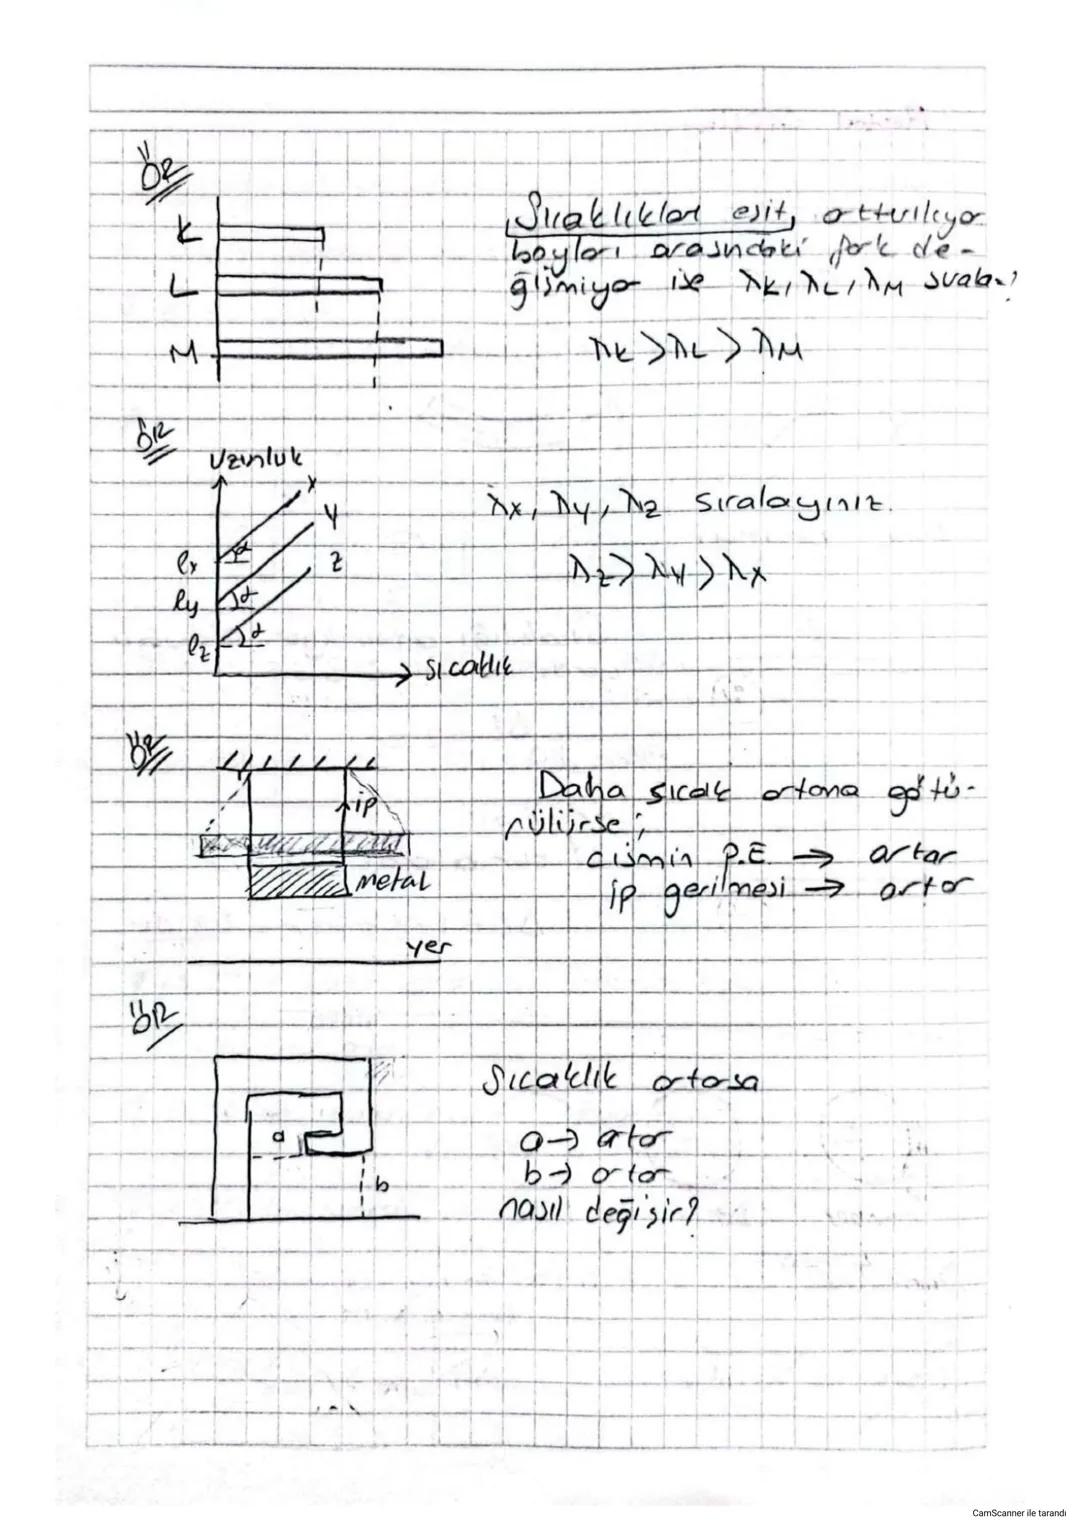 ÖR
K
L
M
Sıcaklıkları eşit, arttırılıyor
boyları arasındaki fark de-
ğişmiyor ise λK, λL, λM sırala.?
λK > λL > λM
ÖR
Uzunluk
x
y
z
lx
ly
lz
α
α
α
sıcaklık
λx, λy, λz sıralayınız.
λz > λy > λx
ÖR
ip
metal
yer
Daha sıcak ortama götü-
rülürse;
cismin P.E. → artar
ip gerilmesi → artar
ÖR
a
b
Sıcaklık artarsa
a → artar
b → artar
nasıl değişir?
CamScanner ile tarandı